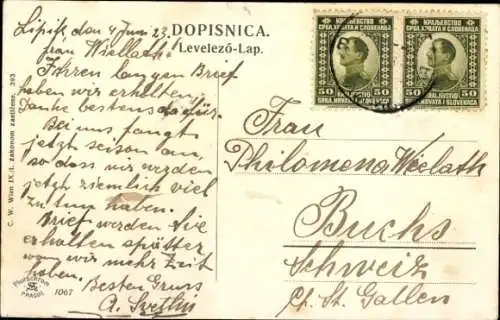 DOPISNICA.
Levelező-Lap.
Lipik, den 4 Juni 23.
frau Wielath.
Ihren langen Brief
haben wir erhalten
Danke bestens dafür.
Bei uns fangt
jetzt seison an,
so dass wir werden
jetz ziemlich viel
zu tun haben.
Brief werden Sie
erhalten spätter
wan wir mehr Zeit
haben.
Besten Gruss
A. Svetlin
C. W. Wien IX/1. zakonom zaštićeno. 393
PHOTOBROM
PRAGUE
1067
КРАЉЕВСТВО
СРБА, ХРВАТА И СЛОВЕНАЦА
50 50
КРАЉЕВСТВО
СРБА, ХРВАТА И СЛОВЕНАЦА
50 50
KRALJEVSTVO
SRBA, HRVATA I SLOVENACA
Frau
Philomena Weelath
Buchs
Schweiz
Ct. St. Gallen